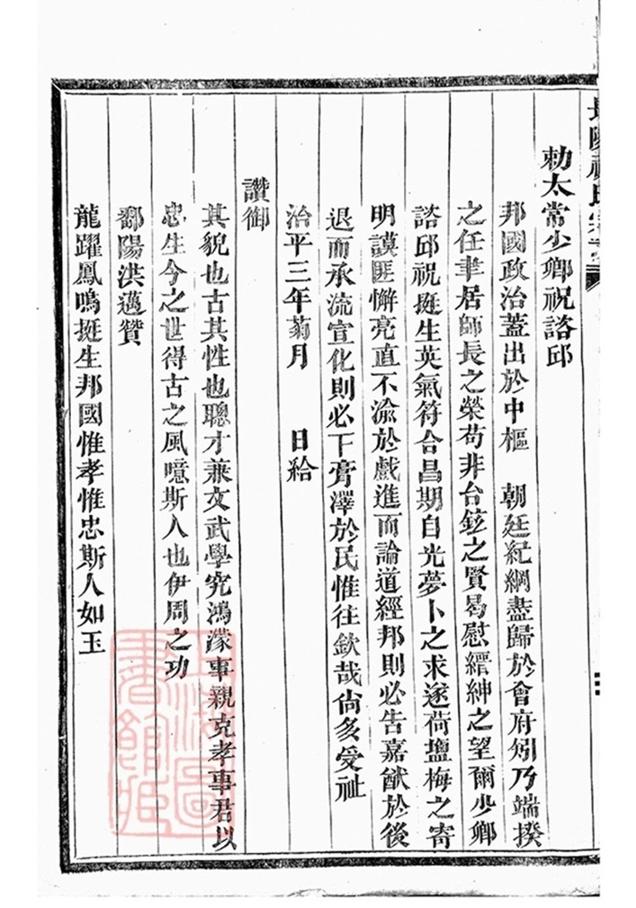 祝氏宗
勅太常少卿祝諮邱
邦國政治蓋出於中樞　朝廷紀綱盡歸於會府矧乃端揆
之任聿居師長之榮苟非台鉉之賢曷慰縉紳之望爾少卿
諮邱祝挺生英氣符合昌期自光夢卜之求遂荷鹽梅之寄
明謨匪懈亮直不渝於戲進而論道經邦則必告嘉猷於後
退而承流宣化則必下膏澤於民惟往欽哉尙多受祉
治平三年菊月　　日給
讚御
其貌也古其性也聰才兼文武學究鴻濛事親克孝事君以
忠生今之世得古之風噫斯人也伊周之功
鄱陽洪邁贊
龍躍鳳鳴挺生邦國惟孝惟忠斯人如玉